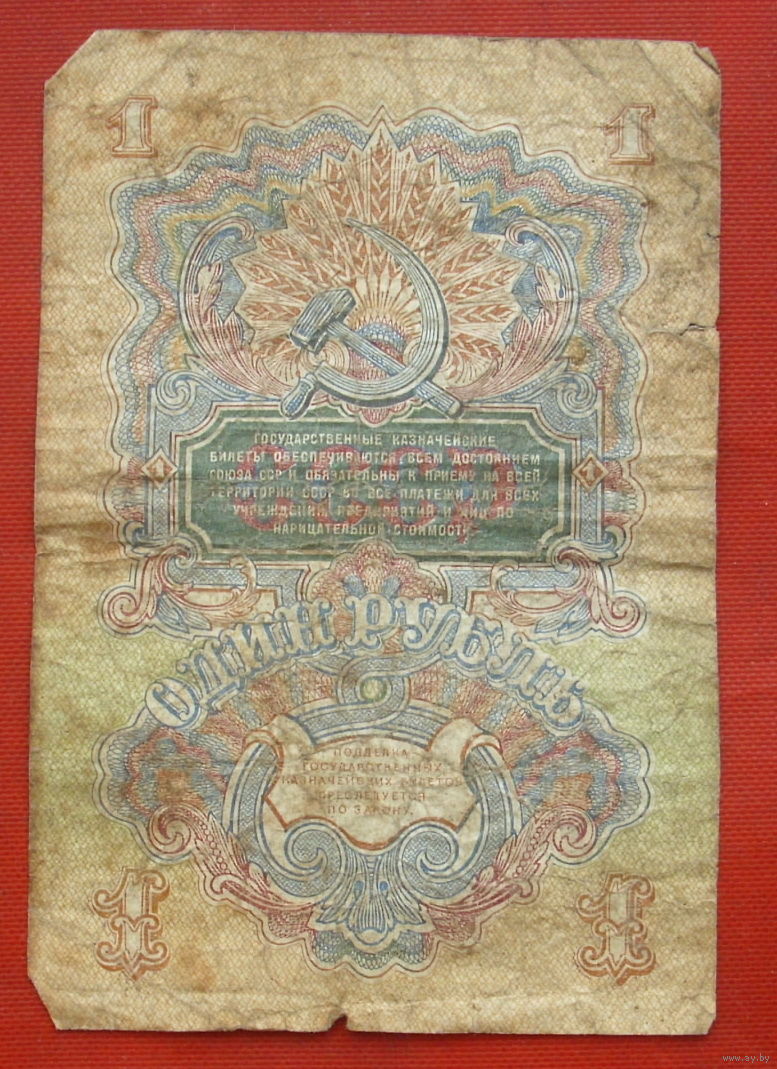 1 1
ГОСУДАРСТВЕННЫЕ КАЗНАЧЕЙСКИЕ
БИЛЕТЫ ОБЕСПЕЧИВАЮТСЯ ВСЕМ ДОСТОЯНИЕМ
СОЮЗА ССР И ОБЯЗАТЕЛЬНЫ К ПРИЕМУ НА ВСЕЙ
ТЕРРИТОРИИ СССР ВО ВСЕ ПЛАТЕЖИ ДЛЯ ВСЕХ
УЧРЕЖДЕНИЙ, ПРЕДПРИЯТИЙ И ЛИЦ ПО
НАРИЦАТЕЛЬНОЙ СТОИМОСТИ
1 СССР 1
ОДИН РУБЛЬ
ПОДДЕЛКА
ГОСУДАРСТВЕННЫХ
КАЗНАЧЕЙСКИХ БИЛЕТОВ
ПРЕСЛЕДУЕТСЯ
ПО ЗАКОНУ.
1 1
www.ay.by